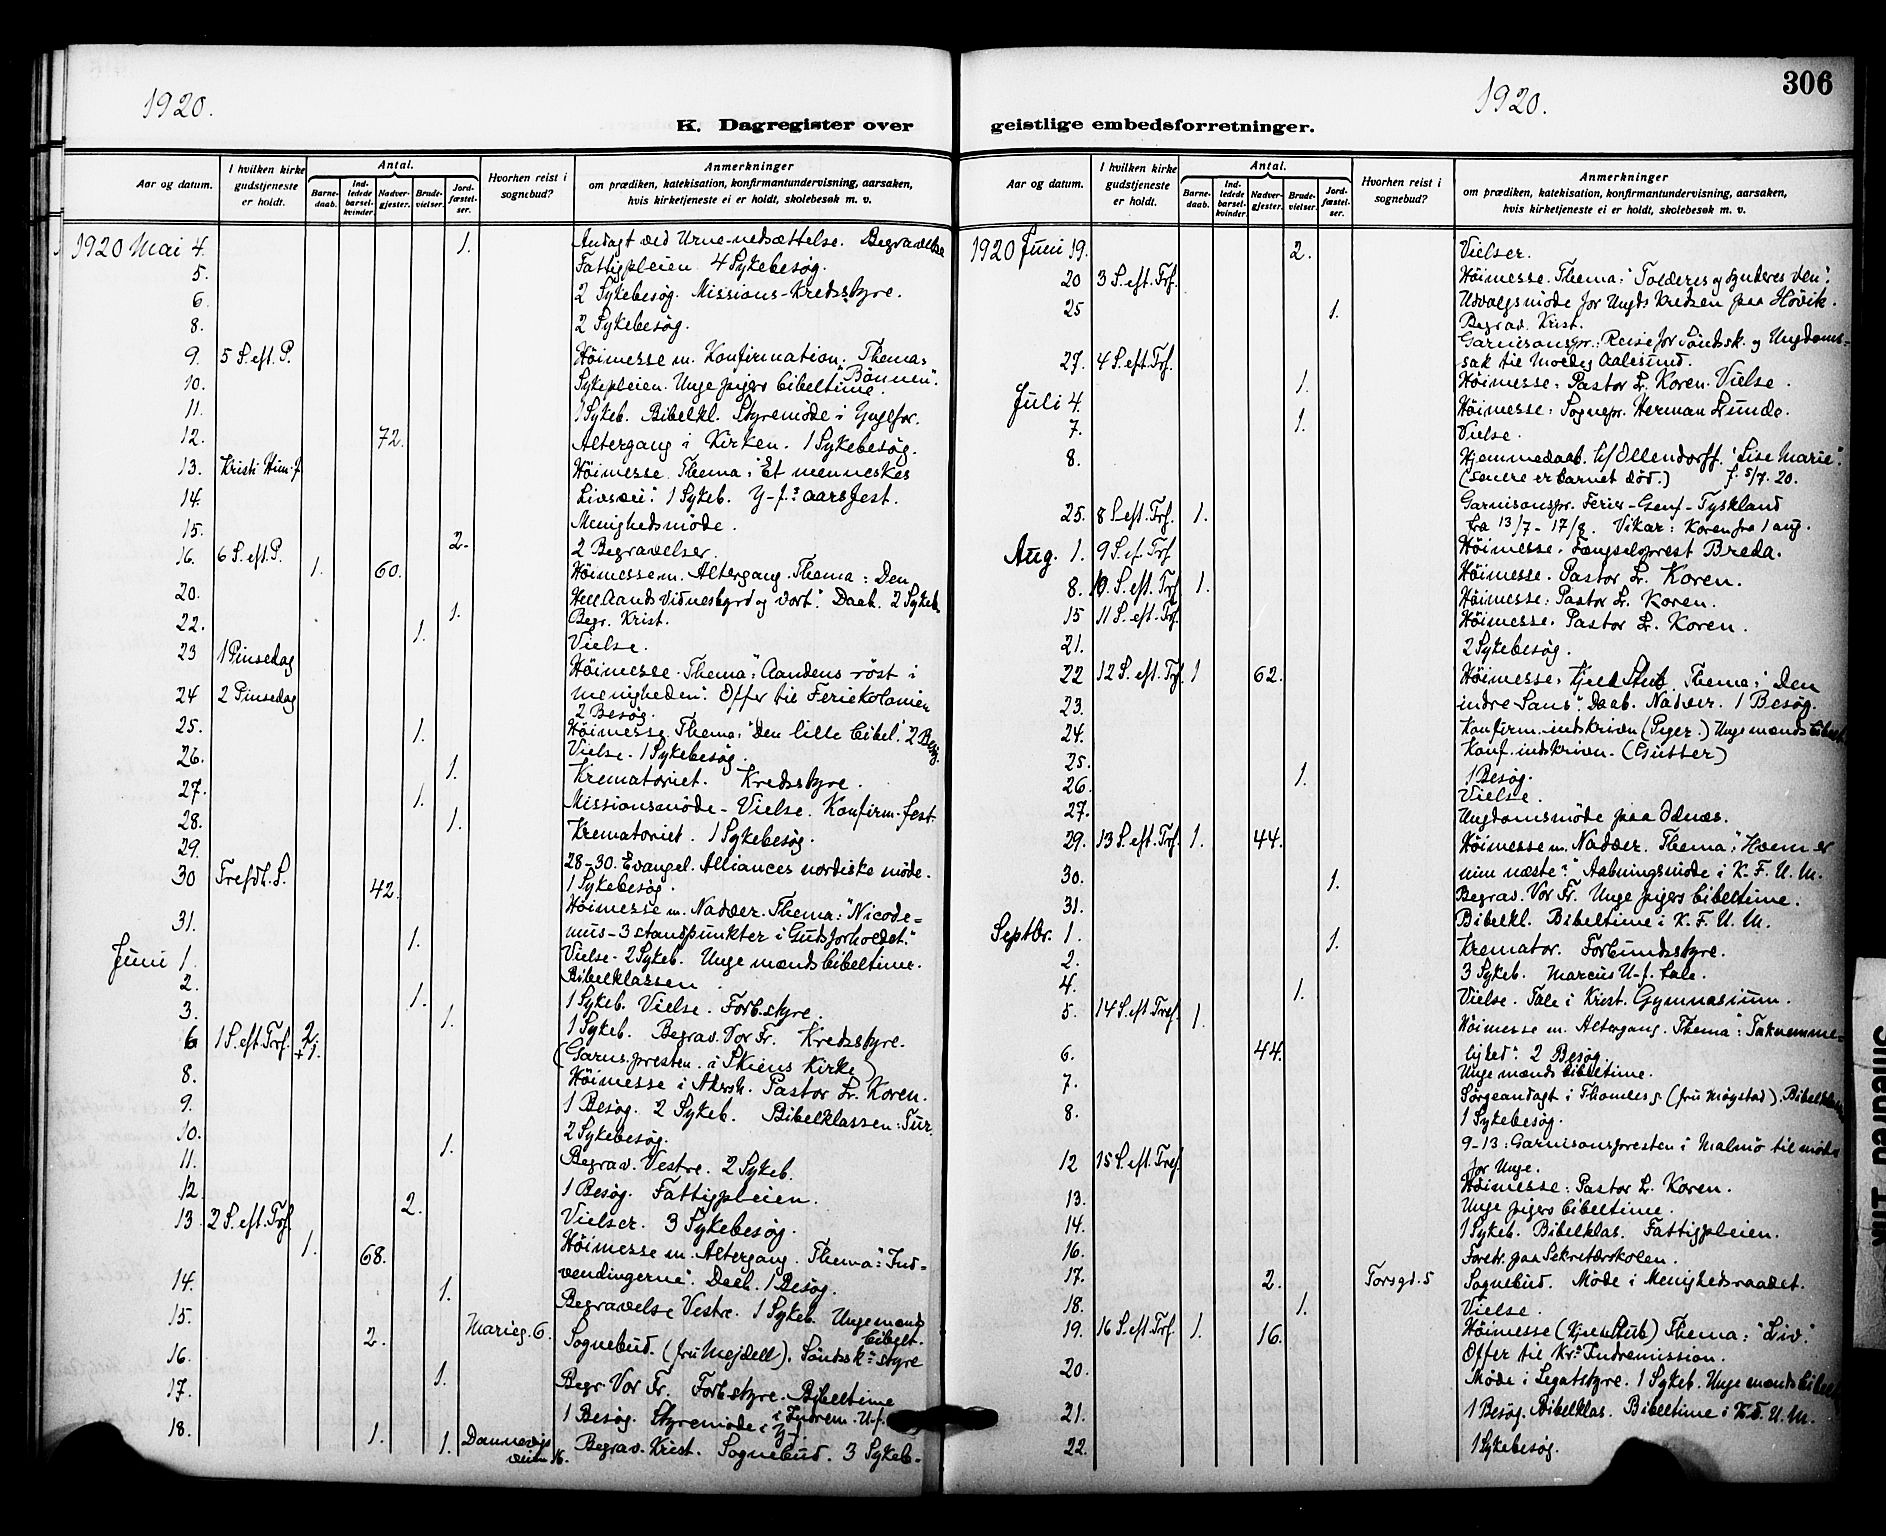 1920.
K. Dagregister over
Aar og datum. I hvilken kirke gudstjeneste er holdt. Antal. Barne-daab. Ind-ledede barsel-kvinder. Nadver-gjester. Brude-vielser. Jord-fæstel-ser. Hvorhen reist i sognebud? Anmerkninger
om prædiken, katekisation, konfirmantundervisning, aarsaken,
hvis kirketjeneste ei er holdt, skolebesøk m. v.
1920 Mai 4. 1. Andagt ved Urne-nedsættelse. Begravelse
5. Fattigpleien 4 Sykebesøg.
6. 2 Sykebesøg. Missions-Kredsstyre.
8. 2 Sykebesøg.
9. 5 S. eft. P. Höimesse m. Konfirmation. Thema: "Bönnen".
10. Sykepleien. Unge pigers bibeltime.
11. 1 Sykeb. Bibelkl. Styremöde i Ynglefor.
12. 72. Altergang i Kirken. 1 Sykebesøg.
13. Kristi Him. f. Höimesse. Thema: "Et menneskes
14. Livsvei". 1 Sykeb. Y-f. aarsfest.
Menighedsmöde.
15. 2. 2 Begravelser.
16. 6 S. eft. P. 1. 60. Höimesse m. Altergang. Thema: Den
20. Hell. Aands Vidnesbyrd og vort". Daab. 2 Sykeb.
1. Begr. Krist.
22. 1. Vielse.
23 1 Pinsedag Höimesse. Thema: "Aandens röst i
24 2 Pinsedag menigheden". Offer til Feriekolonien
2 Besøg.
25. 1. Höimesse. Thema: "Den lille bibel". 2 Besøg.
26. Vielse. 1 Sykebesøg.
1. Krematoriet. Kredsstyre.
27. 1. Missionsmöde - Vielse. Konfirm. fest.
28. 1. Krematoriet. 1 Sykebesøg.
29. 28-30. Evangel. Alliances nordiske möde.
30 Trefdh. S. 42. 1 Sykebesøg.
Höimesse m. Nadver. Thema: "Nicode=
31. mus - 3 standpunkter i Gudsforholdet."
Juni 1. 1. Vielse - 2 Sykeb. Unge mænds bibeltime.
2. Bibelklassen
3. 1. 1 Sykeb. Vielse. Forb. styre.
1. 1 Sykeb. Begrav. Vor Fr. Kredsstyre.
6 1 S. eft. Trf. 2. + 1. (Garns. presten i Skiens Kirke)
8. Höimesse i Akrsh. Pastor Lr. Koren.
9. 1 Besøg. 2 Sykeb. Bibelklassen: Tur.
10. 2 Sykebesøg.
11. 1. Begrav. Vestre. 2 Sykeb.
12. 1 Besøg. Fattigpleien.
13. 2 S. eft. Trf. 2. Vielser. 3 Sykebesøg.
1. 68. Höimesse m. Altergang. Thema: "Ind=
14. vendingerne". Daab. 1 Besøg.
15. 1. Begravelse Vestre. 1 Sykeb. Unge mænds bibelt.
2. Marieg. 6. Sognebud. (fru Mejdell). Söndsk. styre
16. 1. Begr. Vor Fr. Forb. styre. Bibeltime
17. 1 Besøg. Styremöde i Indrem. U-f. i Y-f.
18. 1. 1. Dannevigs veien 16. Begrav. Krist. Sognebud. 3 Sykeb.
1920.
306
geistlige embedsforretninger.
Aar og datum. I hvilken kirke gudstjeneste er holdt. Antal. Barne-daab. Ind-ledede barsel-kvinder. Nadver-gjester. Brude-vielser. Jord-fæstel-ser. Hvorhen reist i sognebud? Anmerkninger
om prædiken, katekisation, konfirmantundervisning, aarsaken,
hvis kirketjeneste ei er holdt, skolebesøk m. v.
1920 Juni 19. 2. Vielser.
20 3 S. eft. Trf. Höimesse. Thema: "Tolderes og synderes ven".
25 Udvalgsmöde for Ungds kredsen paa Hövik.
1. Begrav. Krist.
Garnisonspr: Reise for Söndsk. og Ungdoms-
27. 4 S. eft. Trf. sak til Molde, Aalesund.
1. Höimesse: Pastor Lr. Koren. Vielse.
Juli 4. 1. Höimesse: Sognepr. Herman Lunde.
7. Vielse.
8. Hjemmedaab. Ollendorff. "Lise Marie".
(Senere er barnet död.) f. 5/7. 20.
25. 8 S. eft. Trf. 1. Garnisonspr. Ferier - Genf - Tyskland
fra 13/7 - 17/8. Vikar: Koren fra 1 aug.
Aug. 1. 9 S. ef. Trf. Höimesse. Fængselsprest Breda.
8. 10 S. eft. Trf. 1. Höimesse. Pastor Lr. Koren.
15 11 S. eft. Trf. Höimesse: Pastor Lr. Koren.
Höimesse. Pastor Lr. Koren.
21. 2 Sykebesøg.
22 12 S. eft. Trf. 1 62. Höimesse. Kjeld Stub. Thema: "Den
23. indre Sans". Daab. Nadver. 1 Besøg.
24. Konfirm. indskriven (Piger.) Unge mænds bibelt.
Konf. indskriven. (Gutter)
25. 1 Besøg.
26. 1. Vielse.
27. Ungdomsmöde paa Odnæs.
29. 13 S. eft. Trf. 1. 44. Höimesse m. Nadver. Thema: "Hvem er
30. min næste?" Aabningsmöde i K. F. U. M.
1. Begrav. Vor Fr. Unge pigers bibeltime.
31. Bibelkl. Bibeltime i K. F. U. M.
Septbr. 1. 1. Kremator. Forbundsstyre.
2. 3 Sykeb. Marcus U-f. tale.
4. 1. Vielse. Tale i Krist. Gymnasium.
5. 14 S. eft. Tref. 1. Höimesse m. Altergang. Thema: "Taknemme=
6. 44. lighed". 2 Besøg.
Unge mænds bibeltime.
7. Sørgeandagt i Thomlesg. (fru Møystad). Bibelklassen
8. 1 Sykebesøg.
9-13: Garnisonspresten i Malmö til möde
12 15 S. eft. Tref. for Unge.
Höimesse: Pastor Lr. Koren.
13. Unge pigers bibeltime.
14. 1 Sykeb. Bibelklas. Fattigpleien.
16. Foretr. paa Sekretærskolen.
17. 2. Torsgd. 5 Sognebud. Möde i Menighedsraadet.
18. 1. Vielse.
19. 16 S. eft. Trf. 1. 16. Höimesse (Kjeld Stub) Thema: "Liv".
Offer til Kr. Indremission.
20. Möde i Legatstyre. 1 Sykeb. Unge mænds bibelt.
21. 1 Besøg. Bibelklas. Bibeltime i K. F. U. M.
22. 1 Sykebesøg.